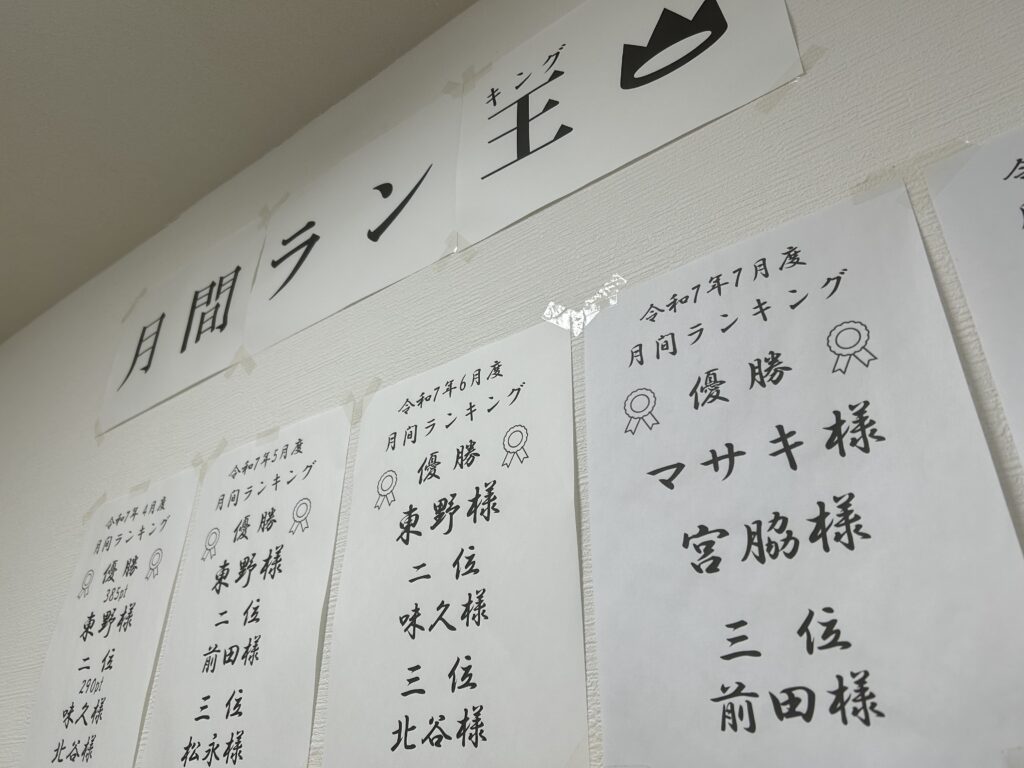 月間ラン王
キング
令和7年4月度
月间ランキング
優勝
385pt
東野様
二位
290pt
味久様
北谷様
令和7年5月度
月间ランキング
優勝
東野様
二位
前田様
三位
松永様
令和7年6月度
月间ランキング
優勝
東野様
二位
味久様
三位
北谷様
令和7年7月度
月间ランキング
優勝
マサキ様
宮脇様
三位
前田様